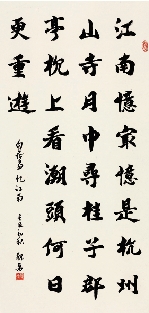 江南憶最憶是杭州
山寺月中尋桂子郡
亭枕上看潮頭何日
更重遊
白居易憶江南